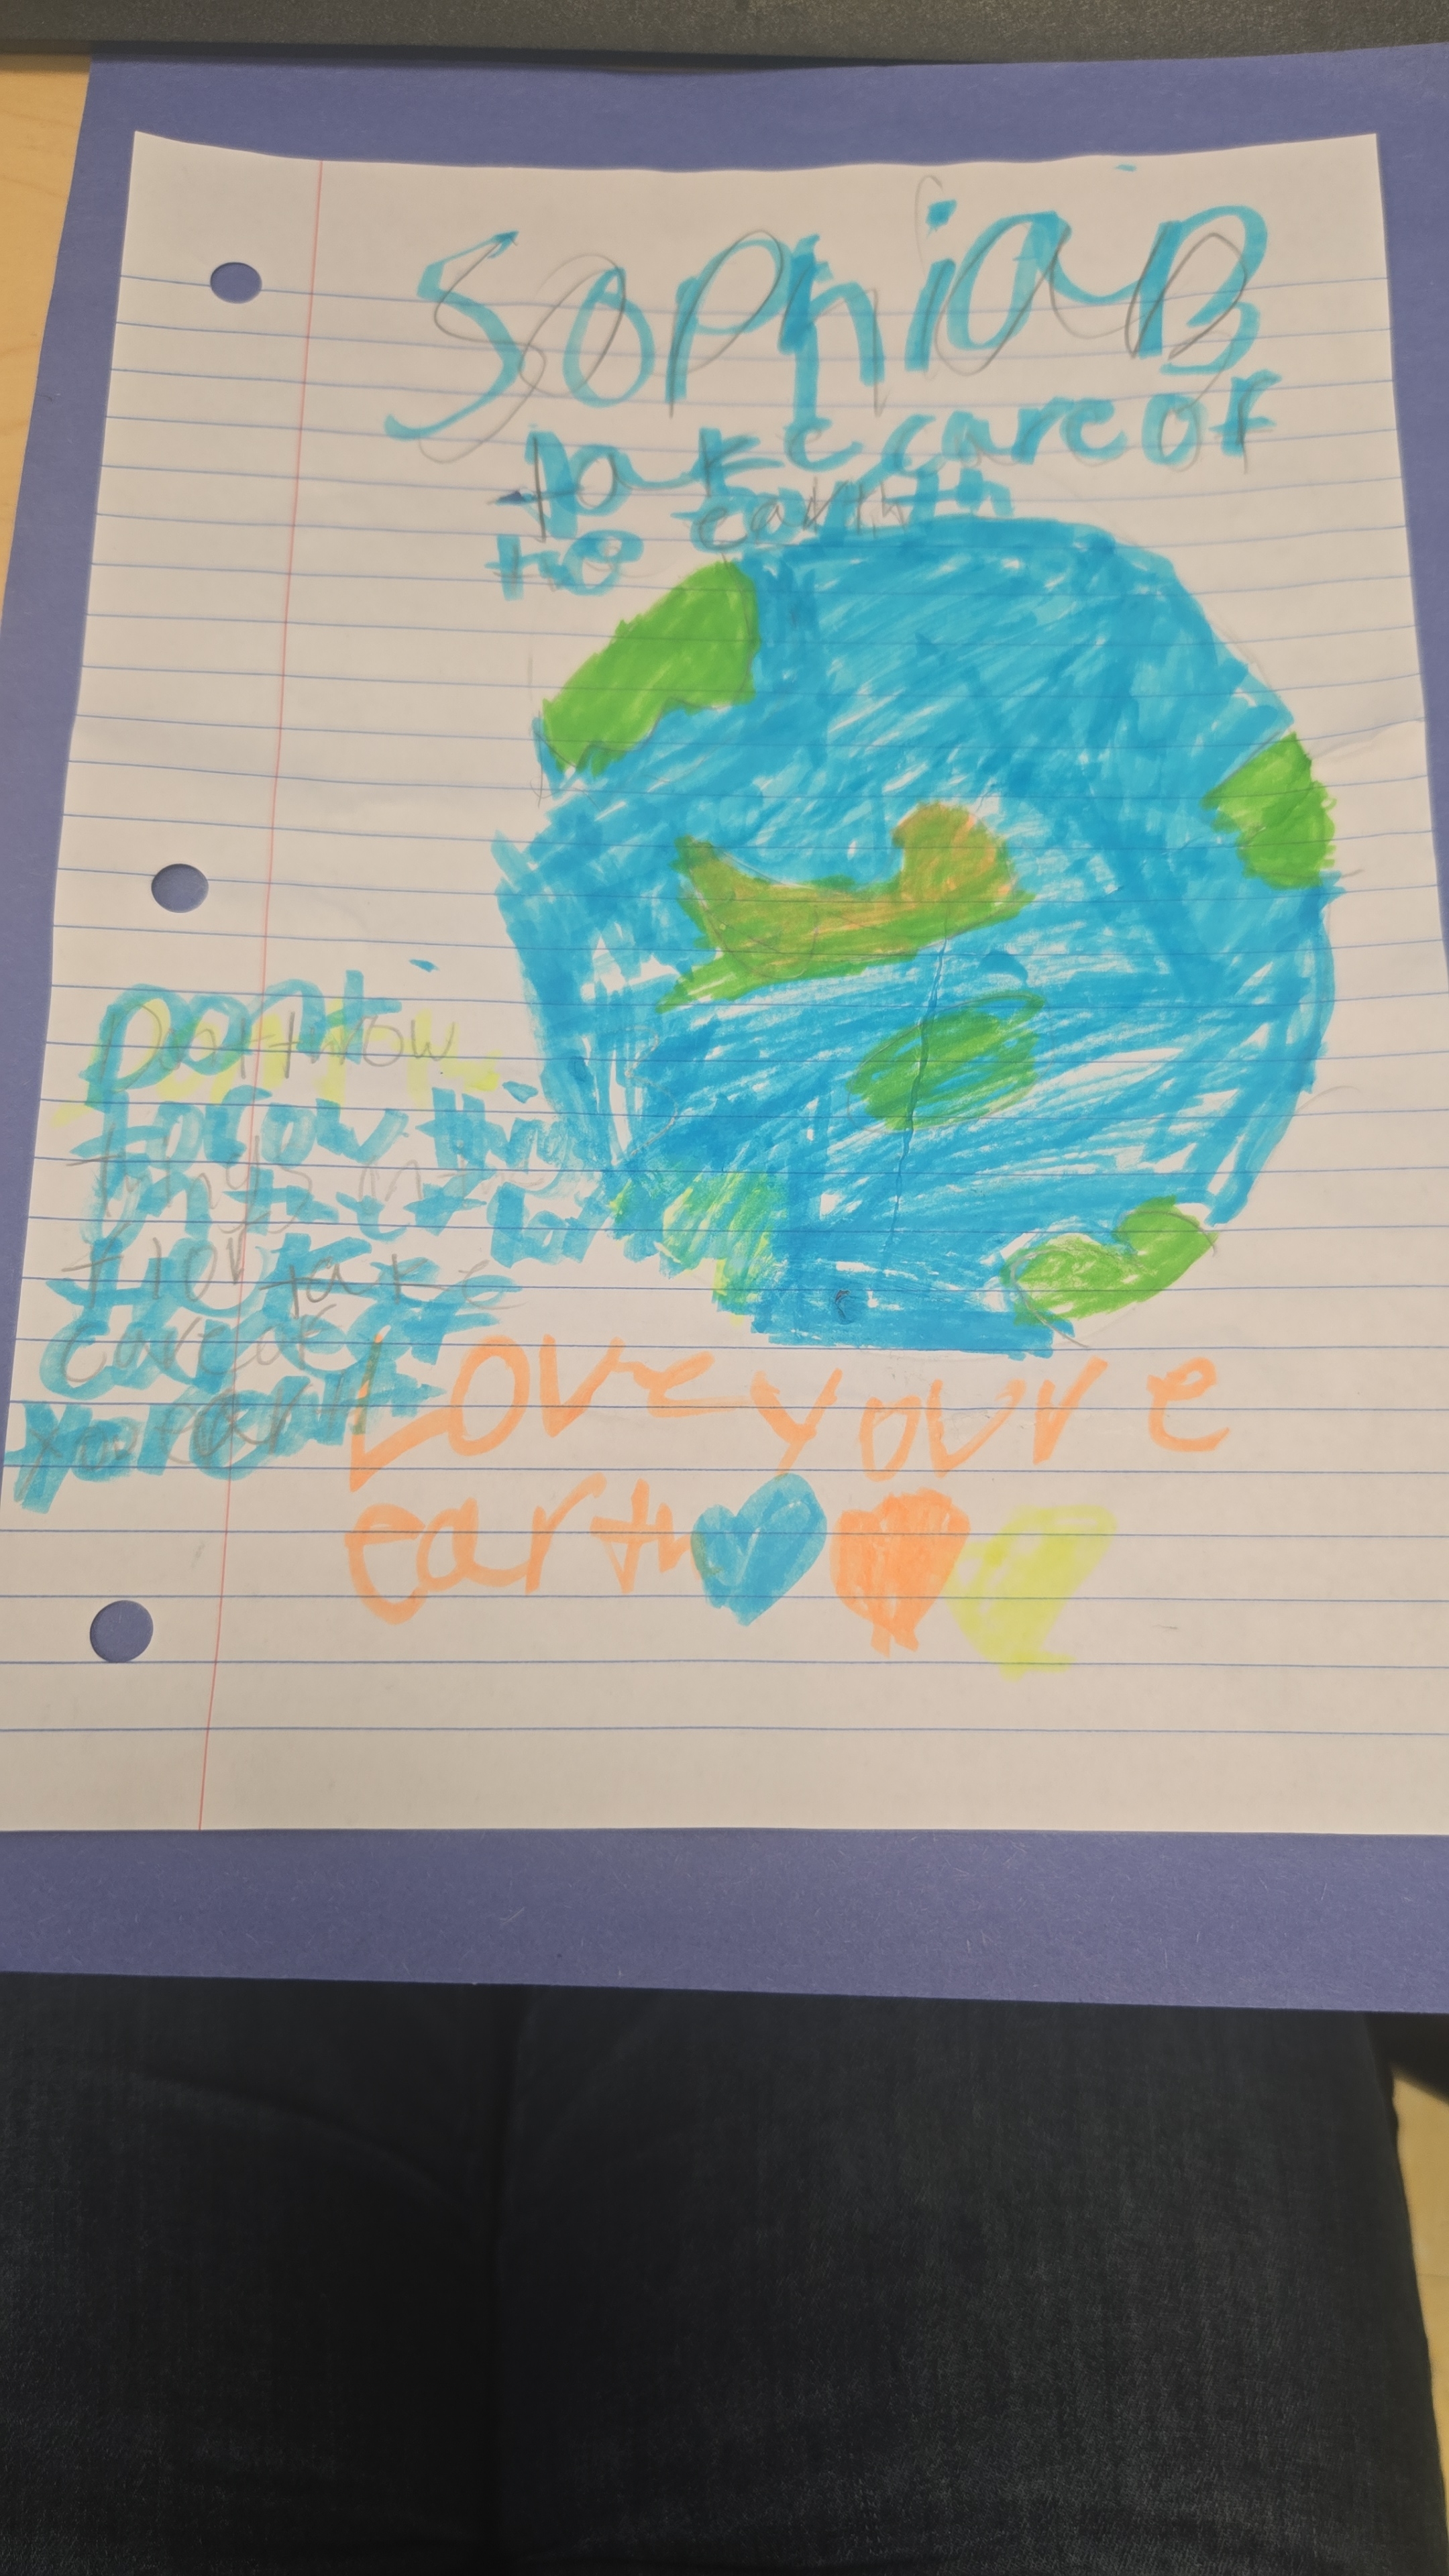 Sophia B
take care of
the earth
Dont throw
thngs n the
flor take
care of
you earth
Love youre
earth